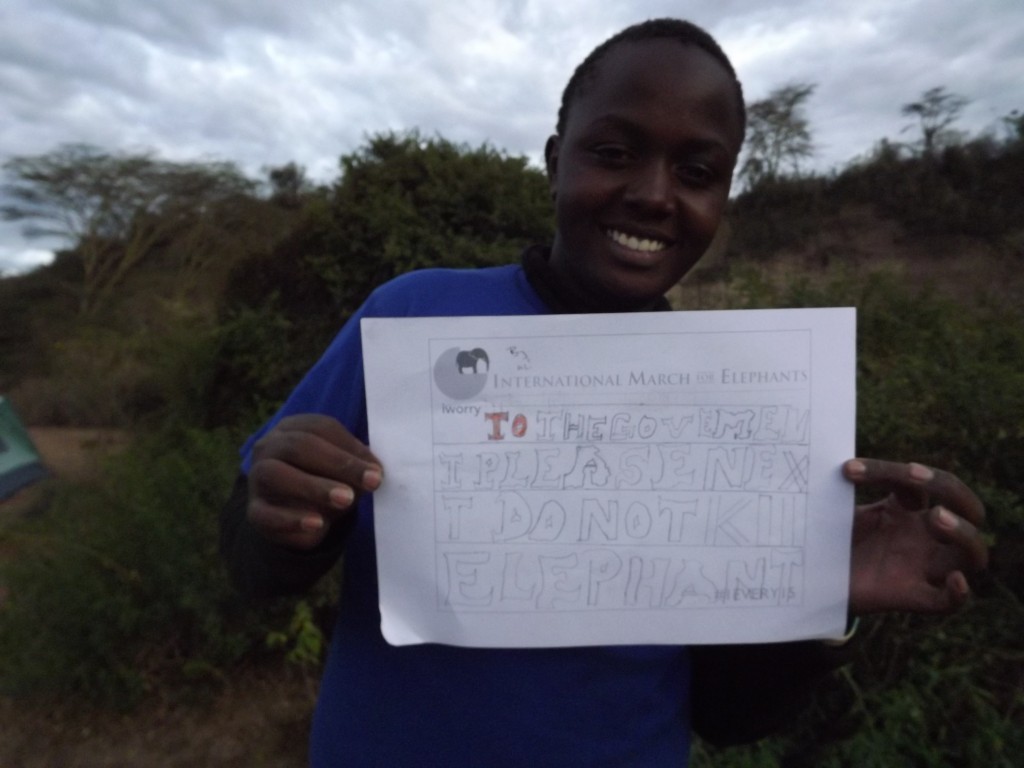 INTERNATIONAL MARCH FOR ELEPHANTS
iworry
TO THE GOVEMEN
T PLEASE NEX
T DO NOT KILL
ELEPHANT
#1EVERY15